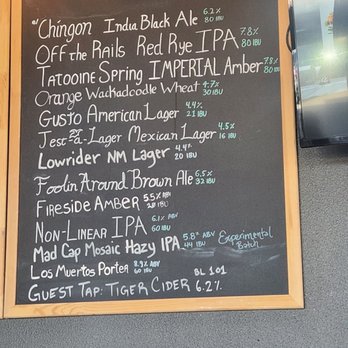 Chingon India Black Ale 6.2% 80 IBU
Off the Rails Red Rye IPA 7.8% 80 IBU
Tatooine Spring IMPERIAL Amber 7.8% 80 IBU
Orange Wachadoodle Wheat 4.7% 30 IBU
Gusto American Lager 4.4% 21 IBU
Jest-za-Lager Mexican Lager 4.5% 16 IBU
Lowrider NM Lager 4.4% 20 IBU
Foolin Around Brown Ale 6.5% 32 IBU
Fireside Amber 5.5% ABV 28 IBU
Non-Linear IPA 6.1% ABV 60 IBU
Mad Cap Mosaic Hazy IPA 5.8% ABV 44 IBU Experimental Batch
Los Muertos Porter 8.9% ABV 60 IBU BL 101
Guest Tap: Tiger Cider 6.2%